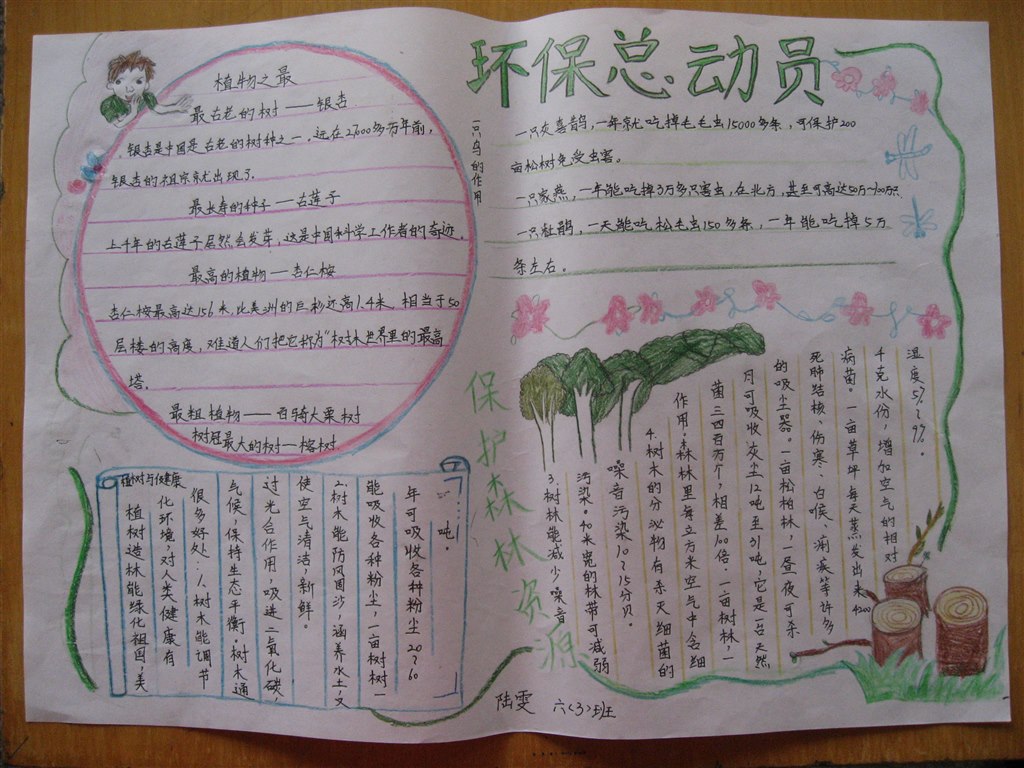 环保总动员
植物之最
最古老的树——银杏
银杏是中国是古老的树种之一。远在27000多万年前,
银杏的祖宗就出现了。
最长寿的种子——古莲子
上千年的古莲子居然会发芽,这是中国科学工作者的奇迹。
最高的植物——杏仁桉
杏仁桉最高达156米,比美洲的巨杉还高1.4米,相当于50
层楼的高度,难道人们把它称为“树木世界里的最高
塔。
最粗植物——百骑大栗树
树冠最大的树—榕树
一只鸟的作用
一只灰喜鹊,一年就吃掉毛毛虫15000多条,可保护200
亩松树免受虫害。
一只家燕,一年能吃掉3万多只害虫,在北方,甚至可高达50万~100万只
一只杜鹃,一天能吃松毛虫150多条,一年能吃掉5万
条左右。
植树与健康
植树造林能绿化祖国,美
化环境,对人类健康有
很多好处:1.树木能调节
气候,保持生态平衡。树木通
过光合作用,吸进二氧化碳,
使空气清洁,新鲜。
2.树木能防风固沙,涵养水土,又
能吸收各种粉尘,一亩树林一
年可吸收各种粉尘20~60
吨。
保护森林资源
3.树林能减少噪音
污染。40米宽的林带可减弱
噪音污染10~15分贝。
4.树木的分泌物有杀灭细菌的
作用。森林里每立方米空气中含细
菌三四百万个,相差100倍。一亩树林,一
月可吸收灰尘12吨至31吨,它是一台天然
的吸尘器。一亩松柏林,一昼夜可杀
死肺结核、伤寒、白喉、痢疾等许多
病菌。一亩草坪每天蒸发出来4200
千克水份,增加空气的相对
湿度5%~9%。
陆雯 六〈3〉班